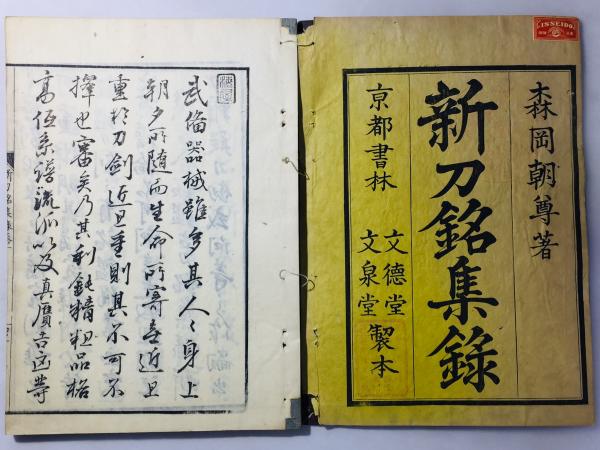 ISSEIDO
森岡朝尊著
新刀銘集録
京都書林
文徳堂
文泉堂
製本
武備器械雖多其人々身上
朝夕所随而生命所寄莫近且
重於刀剣近且重則其不可不
擇也審矣乃其利鈍精粗品格
高低系譜流派以及真贋吉凶等
新刀銘集録巻一